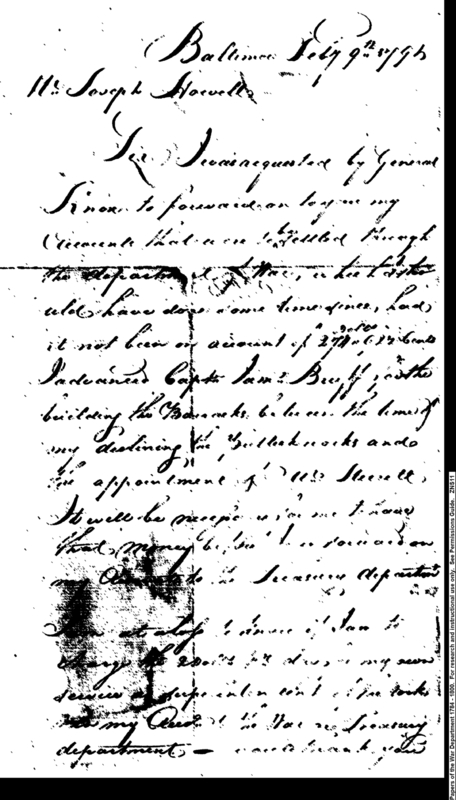 Baltimore Feby 9th 1796
Mr Joseph Howell
Sir I was requested by General
Knox to forward on to you my
Accounts that were to be settled through
the department of War, which I sho
uld have done some time since, had
it not been on account of
I advanced Capt. James Bruff, for the
building the Barracks between the time of
my declining the and
the appointment of Mr
It will be necessary for me to have
that money before I can forward on
my Accounts to the Treasury department
I am at a loss to know if I am to
charge the 2 Dolls pr day for my own
service as superintendent of the works
in my Acct to the War or Treasury
department — would thank you
Papers of the War Department 1784 - 1800. For research and instructional use only. See Permissions Guide. ZNS11